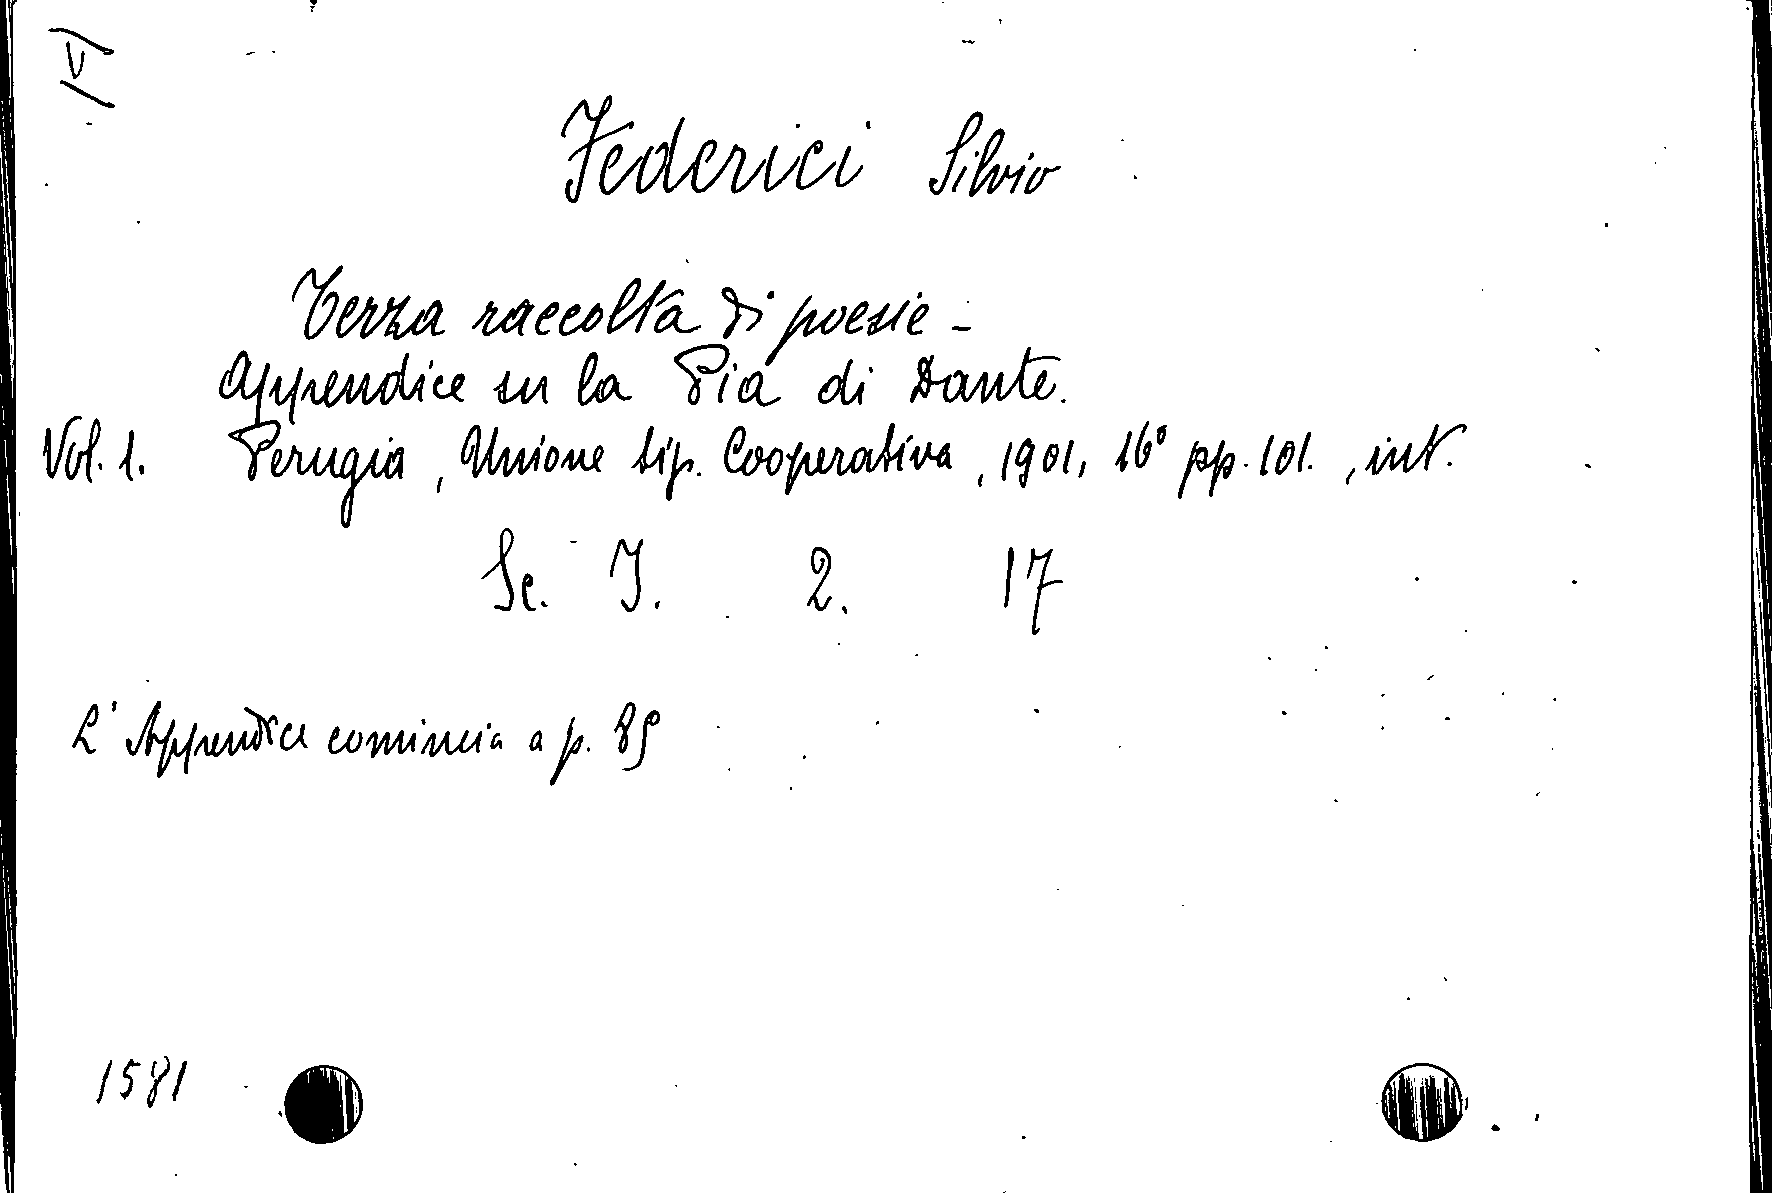 Federici Silvio
Terza raccolta di poesie -
Appendice su la Pia di Dante.
Vol. 1. Perugia, Unione tip. Cooperativa, 1901, 16° pp. 101. , int.
Sc. I. 2. 17
L' Appendice comincia a p. 89
1581